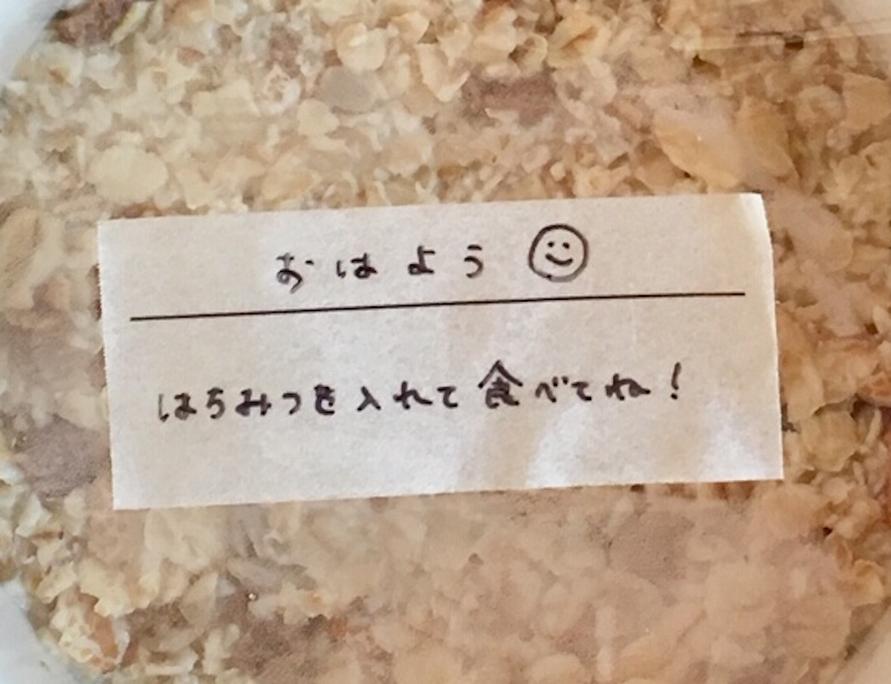 おはよう
はちみつを入れて食べてね!